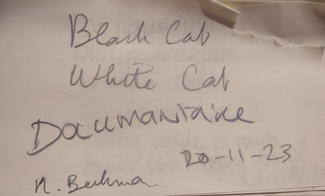 Black Cat
White Cat
Documantaire
20-11-23
M. Beekman